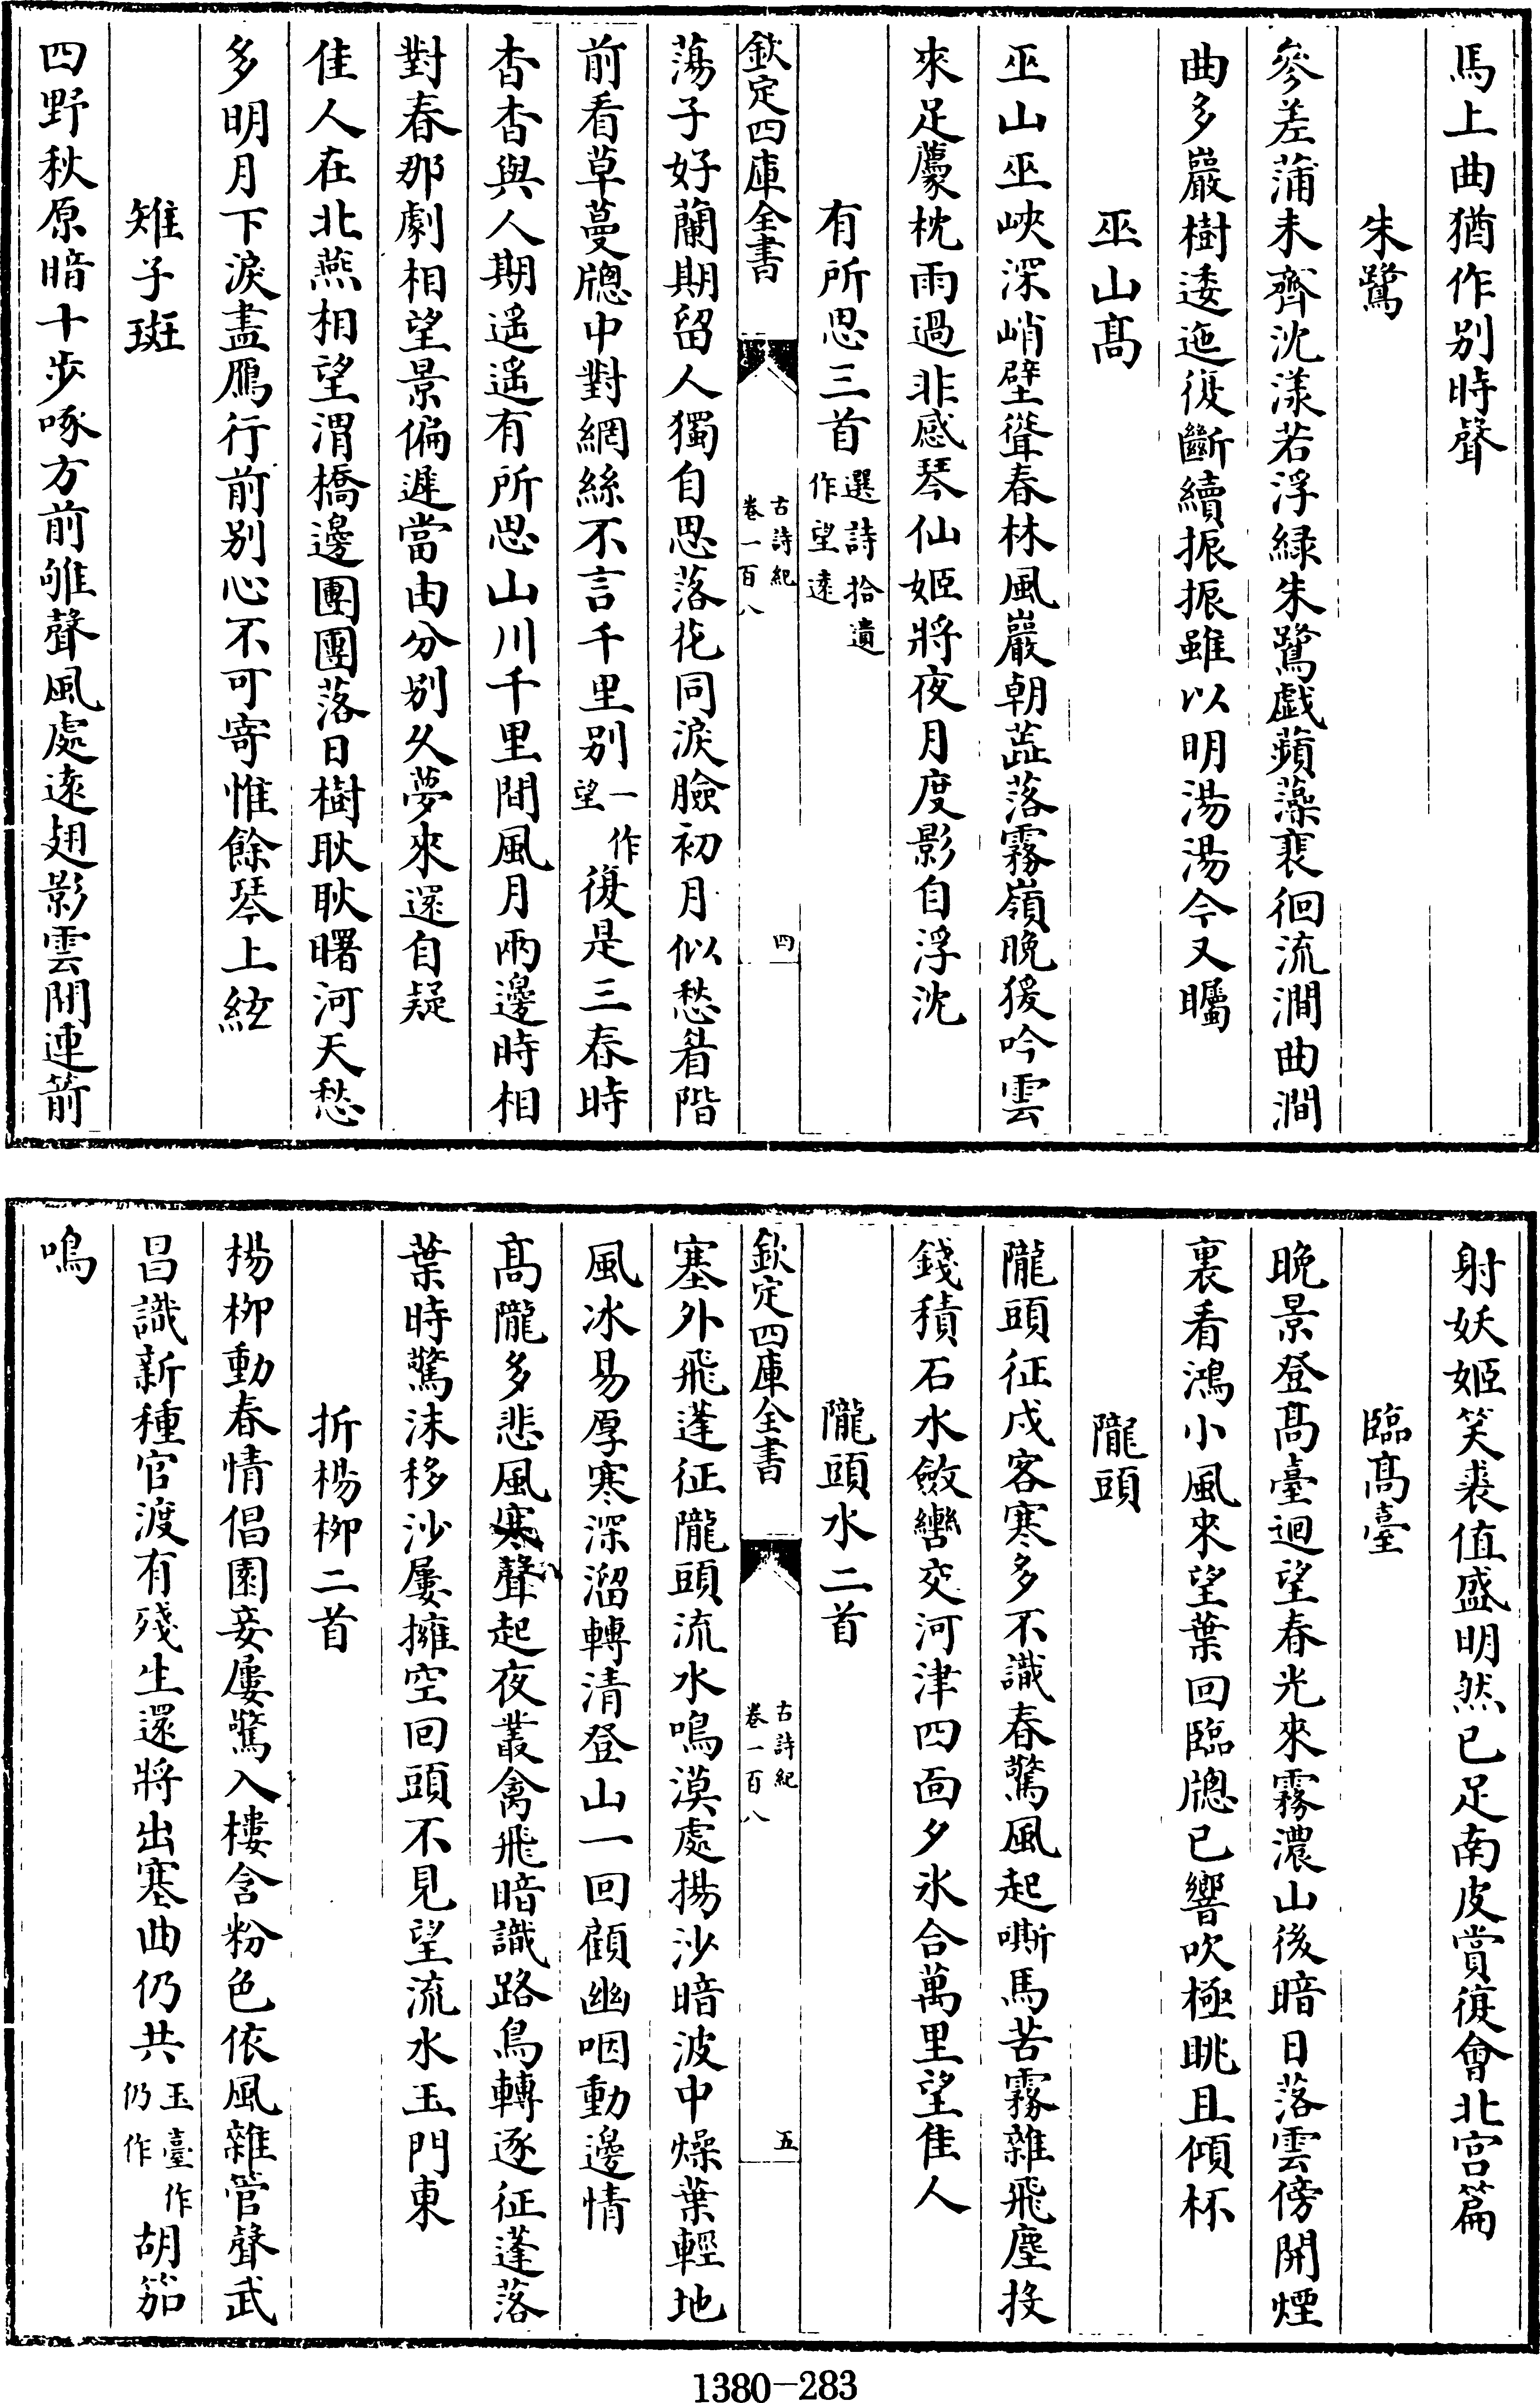 馬上曲猶作别時聲
朱鷺
參差蒲未齊沈漾若浮緑朱鷺戯蘋藻裵徊流澗曲澗
曲多巖樹逶迤復斷續振振雖以明湯湯今又矚
巫山髙
巫山巫峽深峭壁聳春林風巖朝蕋落霧嶺晩猨吟雲
來足薦枕雨過非感琴仙姬將夜月度影自浮沈
有所思三首選詩拾遺作望逺
欽定四庫全書
古詩紀
卷一百八
四
蕩子好蘭期留人獨自思落花同淚臉初月似愁眉階
前看草蔓牕中對網絲不言千里别一作望復是三春時
杳杳與人期遥遥有所思山川千里間風月兩邊時相
對春那劇相望景偏遲當由分别久夢來還自疑
佳人在北燕相望渭橋邊團團落日樹耿耿曙河天愁
多明月下淚盡鴈行前别心不可寄惟餘琴上絃
雉子斑
四野秋原暗十步啄方前雊聲風處逺翅影雲間連箭
射妖姬笑裘值盛明然已足南皮賞復會北宫篇
臨髙臺
晩景登髙臺迥望春光來霧濃山後暗日落雲傍開煙
裏看鴻小風來望葉回臨牕已響吹極眺且傾杯
隴頭
隴頭征戍客寒多不識春驚風起嘶馬苦霧雜飛塵投
錢積石水斂轡交河津四面夕氷合萬里望佳人
隴頭水二首
欽定四庫全書
古詩紀
卷一百八
五
塞外飛蓬征隴頭流水鳴漠處揚沙暗波中燥葉輕地
風冰易厚寒深溜轉清登山一回顧幽咽動邊情
髙隴多悲風寒聲起夜叢禽飛暗識路鳥轉逐征蓬落
葉時驚沫移沙屢擁空回頭不見望流水玉門東
折楊栁二首
楊栁動春情倡園妾屢驚入樓含粉色依風雜管聲武
昌識新種官渡有殘生還將出塞曲仍共玉臺作仍作胡笳
鳴
1380-283